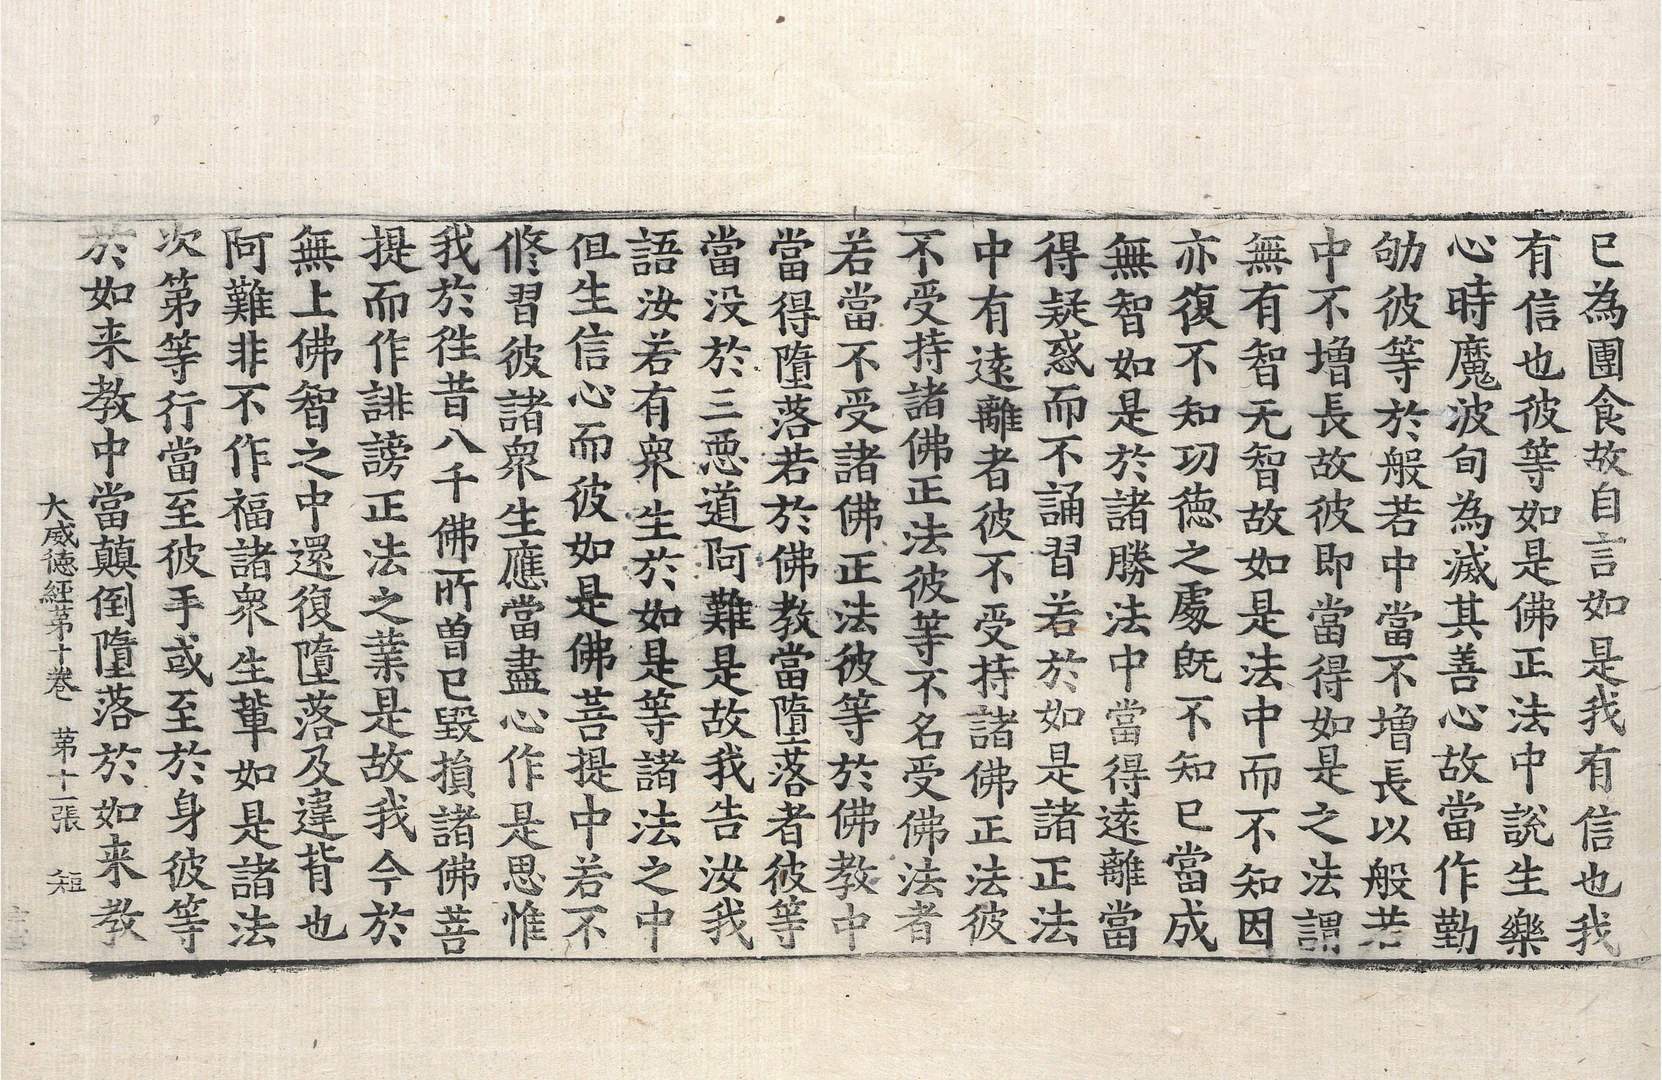 已為團食故自言如是我有信也我
有信也彼等如是佛正法中說生樂
心時魔波旬為滅其善心故當作勤
劬彼等於般若中當不增長以般若
中不增長故彼即當得如是之法謂
無有智无智故如是法中而不知因
亦復不知功德之處既不知已當成
無智如是於諸勝法中當得遠離當
得疑惑而不誦習若於如是諸正法
中有遠離者彼不受持諸佛正法彼
不受持諸佛正法彼等不名受佛法者
若當不受諸佛正法彼等於佛教中
當得墮落若於佛教當墮落者彼等
當没於三惡道阿難是故我告汝我
語汝若有眾生於如是等諸法之中
但生信心而彼如是佛菩提中若不
修習彼諸眾生應當盡心作是思惟
我於徃昔八千佛所曽已毀損諸佛菩
提而作誹謗正法之業是故我今於
無上佛智之中還復墮落及違背也
阿難非不作福諸眾生輩如是諸法
次第等行當至彼手或至於身彼等
於如来教中當顛倒墮落於如来教
大威德經苐十卷 苐十一張 短